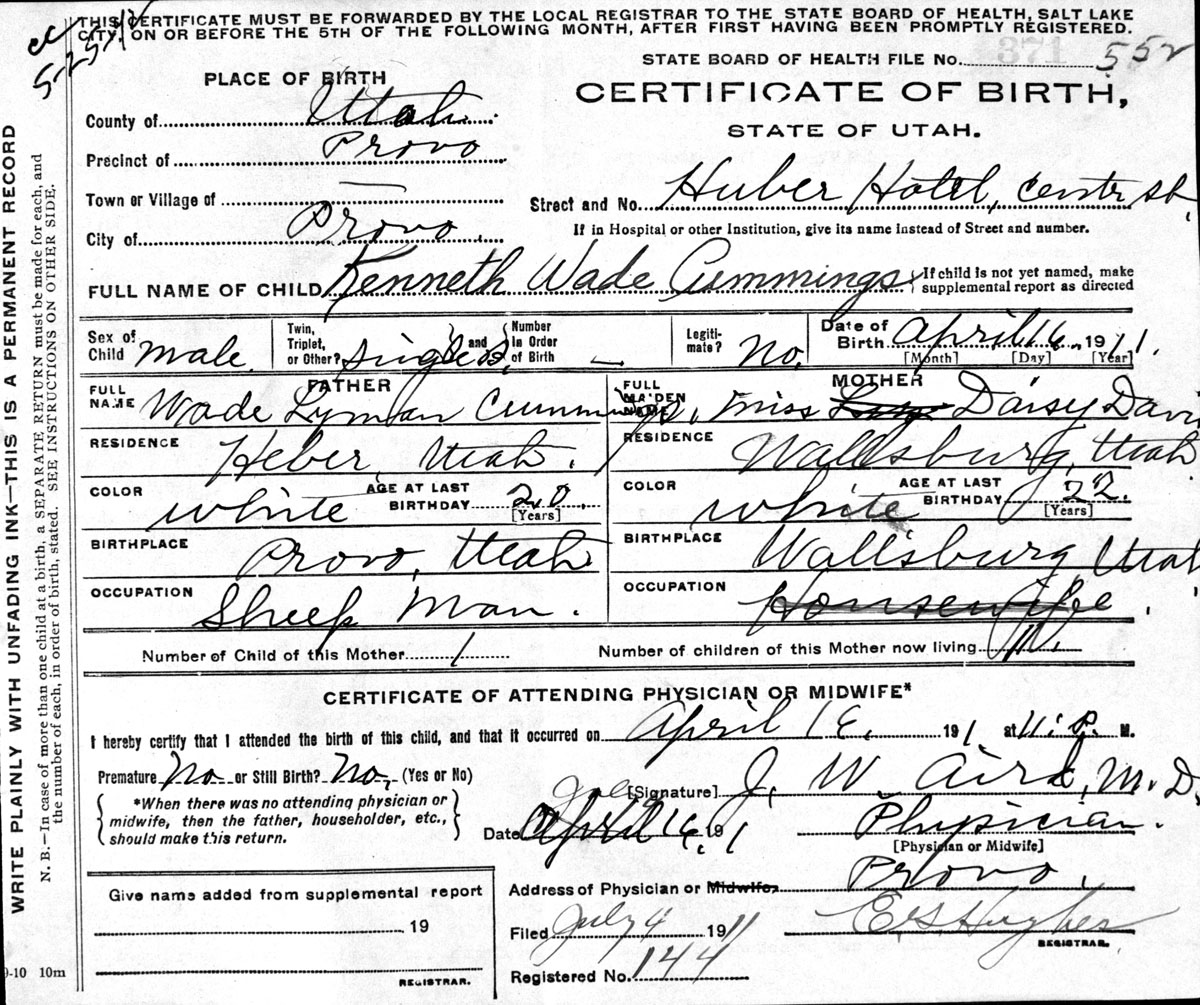 THIS CERTIFICATE MUST BE FORWARDED BY THE LOCAL REGISTRAR TO THE STATE BOARD OF HEALTH, SALT LAKE
CITY, ON OR BEFORE THE 5TH OF THE FOLLOWING MONTH, AFTER FIRST HAVING BEEN PROMPTLY REGISTERED.
STATE BOARD OF HEALTH FILE No. 371 552
PLACE OF BIRTH
CERTIFICATE OF BIRTH,
STATE OF UTAH.
County of Utah.
Precinct of Provo
Town or Village of —
Street and No. Huber Hotel, Centr st.
City of Provo.
If in Hospital or other Institution, give its name instead of Street and number.
FULL NAME OF CHILD Kenneth Wade Cummings { If child is not yet named, make
supplemental report as directed
Sex of Child male. Twin, Triplet, or Other? single and Number in Order of Birth — Legiti- mate? No. Date of Birth April 16, 1911.
[Month] [Day] [Year]
FATHER MOTHER
FULL NAME Wade Lyman Cummings, FULL MAIDEN NAME Miss Daisy Davi
RESIDENCE Heber, Utah. RESIDENCE Wallsburg, Utah
COLOR white AGE AT LAST BIRTHDAY 20 [Years] COLOR white AGE AT LAST BIRTHDAY 22. [Years]
BIRTHPLACE Provo, Utah BIRTHPLACE Wallsburg Utah
OCCUPATION Sheep Man. OCCUPATION Housewife.
Number of Child of this Mother 1 Number of children of this Mother now living
CERTIFICATE OF ATTENDING PHYSICIAN OR MIDWIFE*
I hereby certify that I attended the birth of this child, and that it occurred on April 16, 191 1 at 11: P. M.
Premature No. or Still Birth? No, (Yes or No)
{ *When there was no attending physician or
midwife, then the father, householder, etc.,
should make this return. }
[Signature] J. W. Aird, M.D.
Date April 16, 191 1 Physician.
[Physician or Midwife]
Address of Physician or Midwife Provo,
Give name added from supplemental report
19
REGISTRAR.
Filed July 4 1911 E. S. Hughes
REGISTRAR.
Registered No. 144
9-10 10m
WRITE PLAINLY WITH UNFADING INK—THIS IS A PERMANENT RECORD
N. B.—In case of more than one child at a birth, a SEPARATE RETURN must be made for each, and
the number of each, in order of birth, stated. SEE INSTRUCTIONS ON OTHER SIDE.